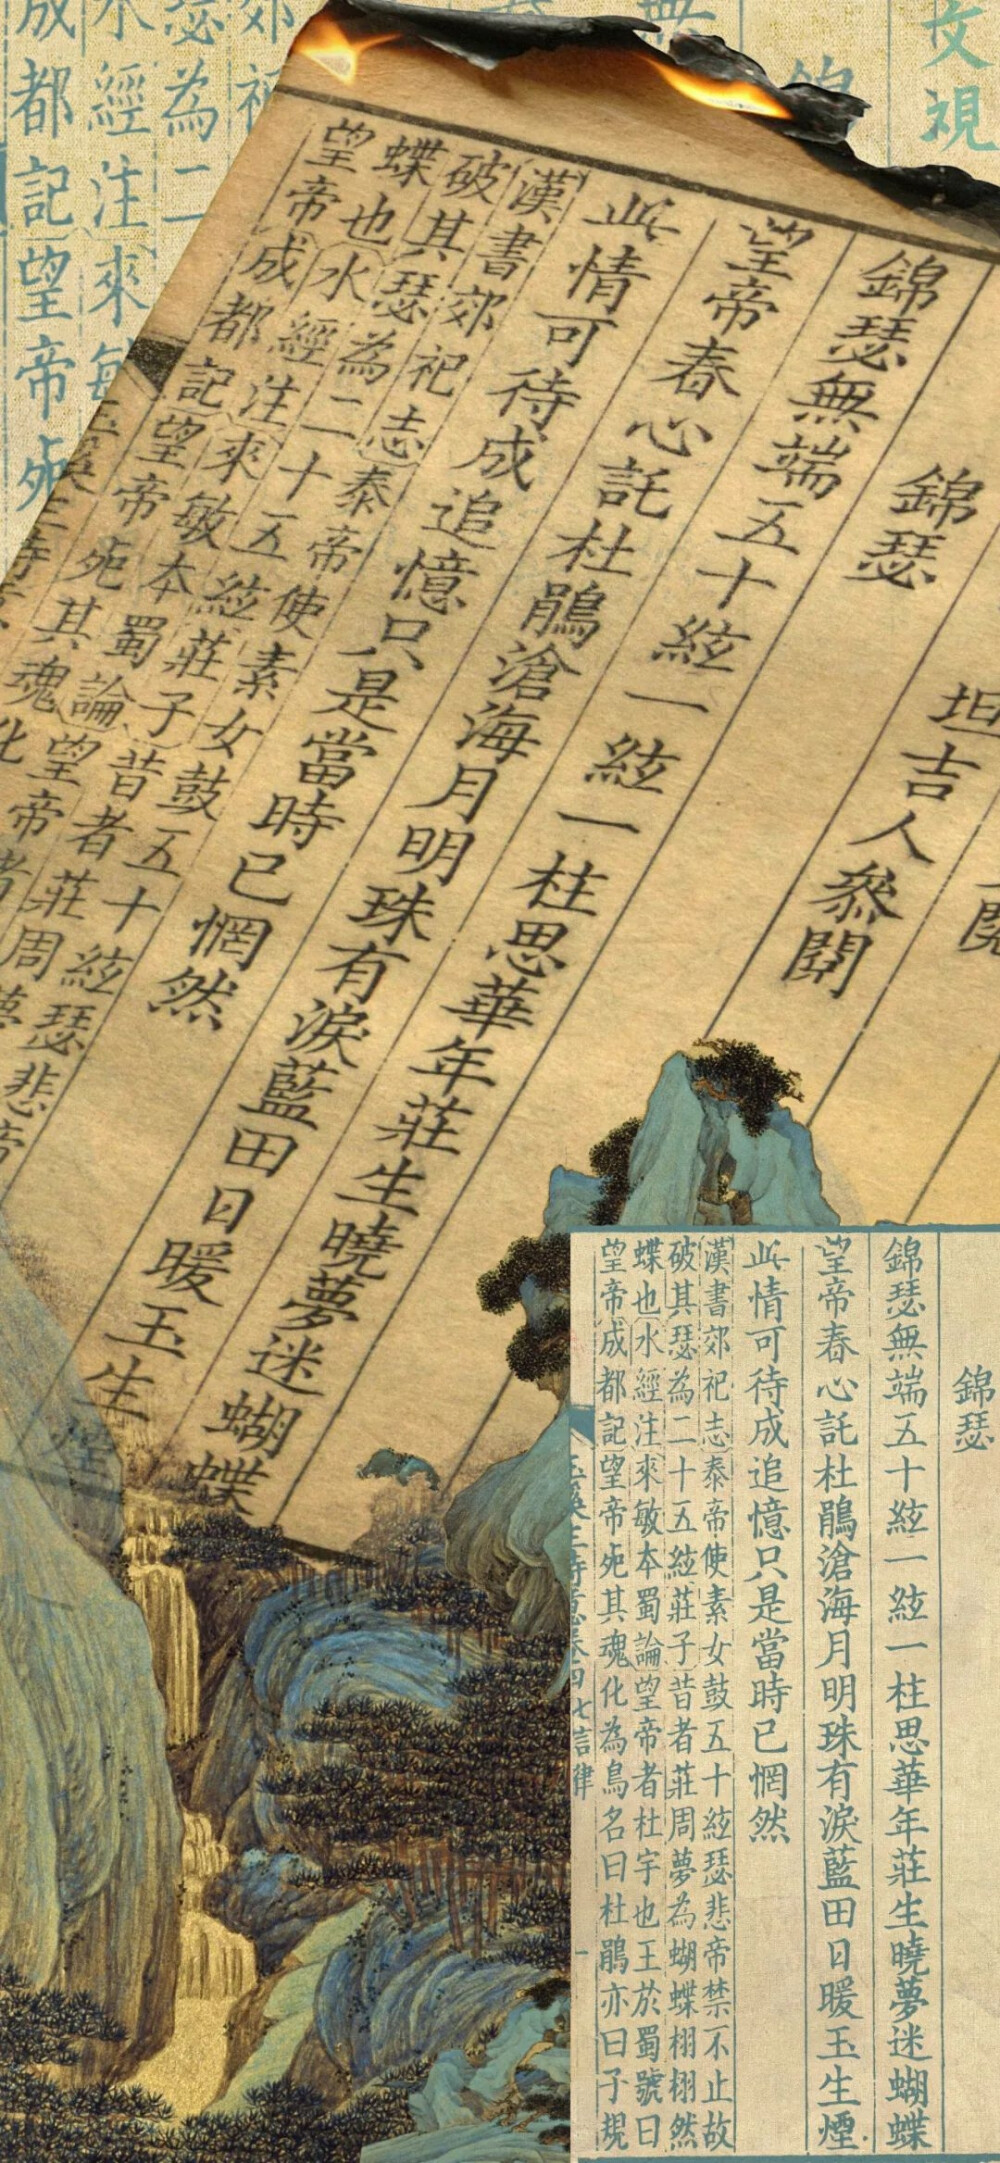 文視
瑟為二
水經注來敏
成都記望帝死
坦吉人叅閱
錦瑟
錦瑟無端五十絃一絃一柱思華年莊生曉夢迷蝴蝶
望帝春心託杜鵑滄海月明珠有淚藍田日暖玉生煙
此情可待成追憶只是當時已惘然
漢書郊祀志泰帝使素女鼓五十絃瑟悲帝
破其瑟為二十五絃莊子昔者莊周夢
蝶也水經注來敏本蜀論望帝者
望帝成都記望帝死其魂化
錦瑟
錦瑟無端五十絃一絃一柱思華年莊生曉夢迷蝴蝶
望帝春心託杜鵑滄海月明珠有淚藍田日暖玉生煙
此情可待成追憶只是當時已惘然
漢書郊祀志泰帝使素女鼓五十絃瑟悲帝禁不止故
破其瑟為二十五絃莊子昔者莊周夢為蝴蝶栩栩然
蝶也水經注來敏本蜀論望帝者杜宇也王於蜀號曰
望帝成都記望帝死其魂化為鳥名曰杜鵑亦曰子規
卷四 七言律